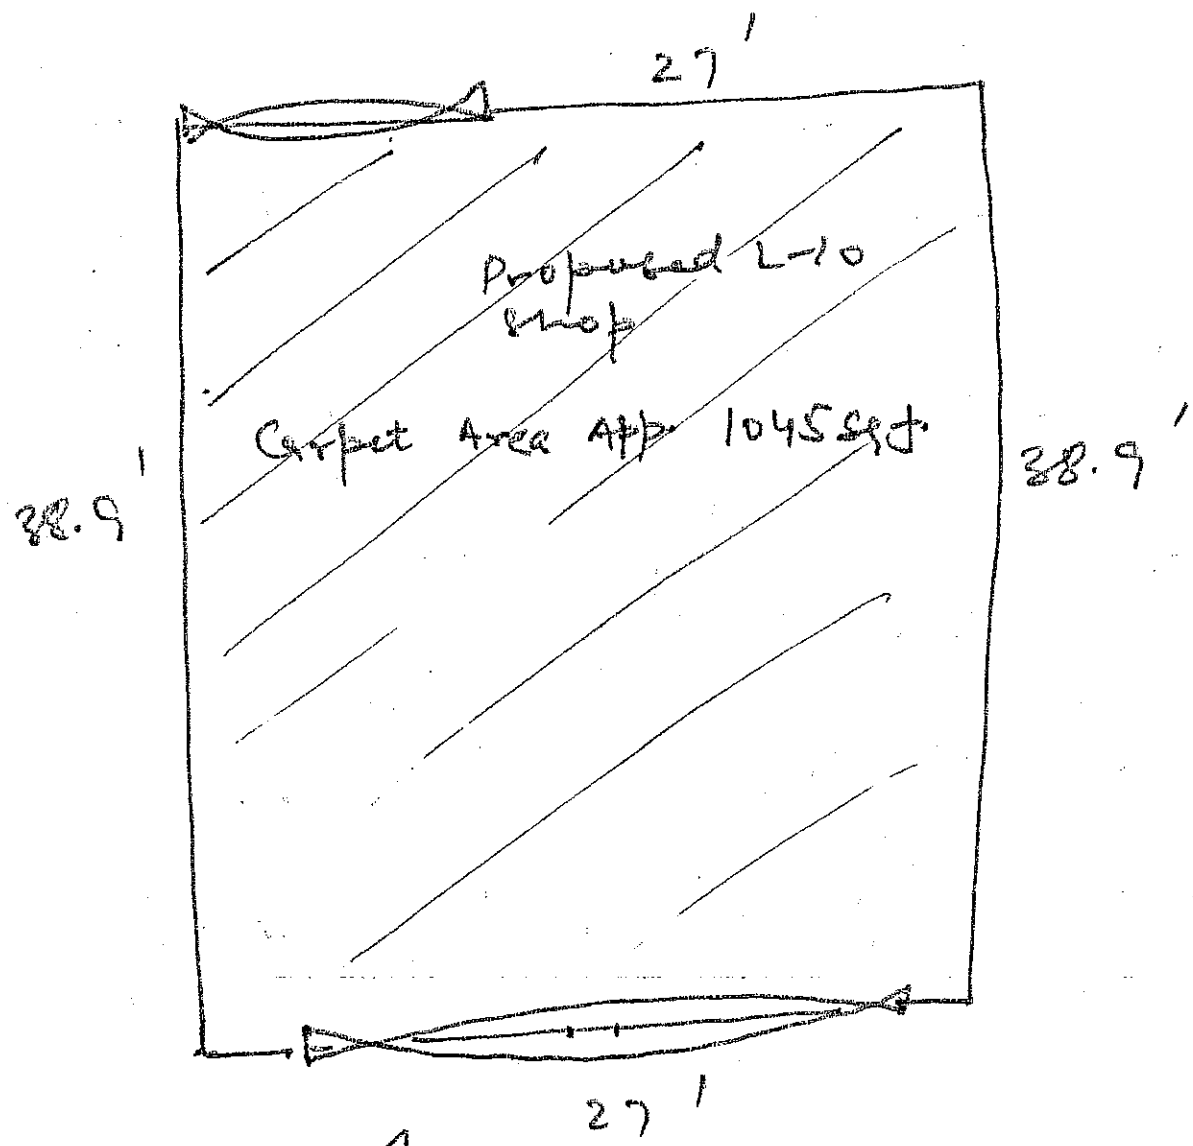 27'
Proposed L-10
Shop
Carpet Area App. 1045 Sqf.
38.9'
38.9'
27'